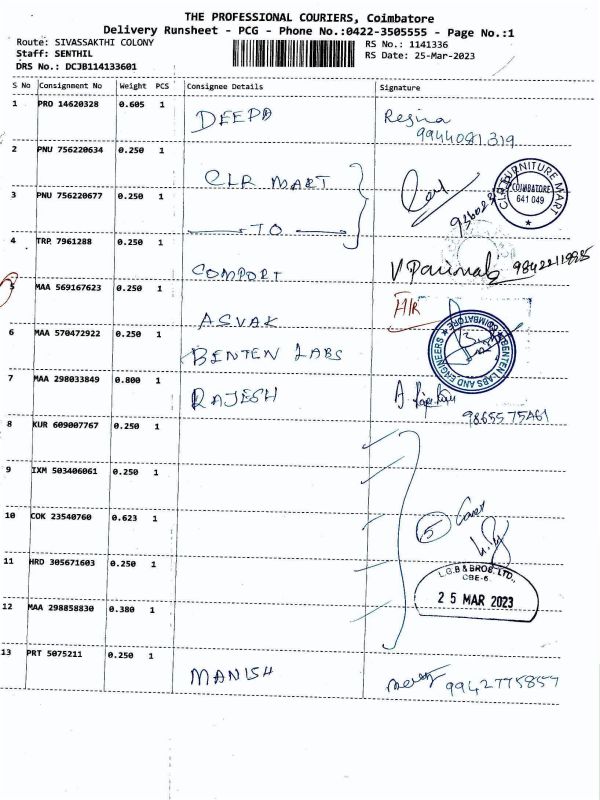 THE PROFESSIONAL COURIERS, Coimbatore
Delivery Runsheet - PCG - Phone No.:0422-3505555 - Page No.:1
Route: SIVASSAKTHI COLONY
Staff: SENTHIL
DRS No.: DCJB114133601
RS No.: 1141336
RS Date: 25-Mar-2023
S No Consignment No Weight PCS Consignee Details Signature
1 PRO 14620328 0.605 1 DEEPA Regina
9944081319
2 PNU 756220634 0.250 1 CLR MART
3 PNU 756220677 0.250 1 TO
CLR FURNITURE MART
COIMBATORE
641 049
4 TRP 7961288 0.250 1 COMPORT
5 MAA 569167623 0.250 1 ASVAK H/R
6 MAA 570472922 0.250 1 BENTEN LABS
BENTEN LABS AND ENGINEERS
COIMBATORE
7 MAA 298033849 0.800 1 RAJESH
8 KUR 609007767 0.250 1
9 IXM 503406061 0.250 1
10 COK 23540760 0.623 1 5 Cover
11 HRD 305671603 0.250 1
L.G.B & BROS. LTD.,
CBE-6.
25 MAR 2023
12 MAA 298858830 0.380 1
13 PRT 5075211 0.250 1 MANISH 9942775857